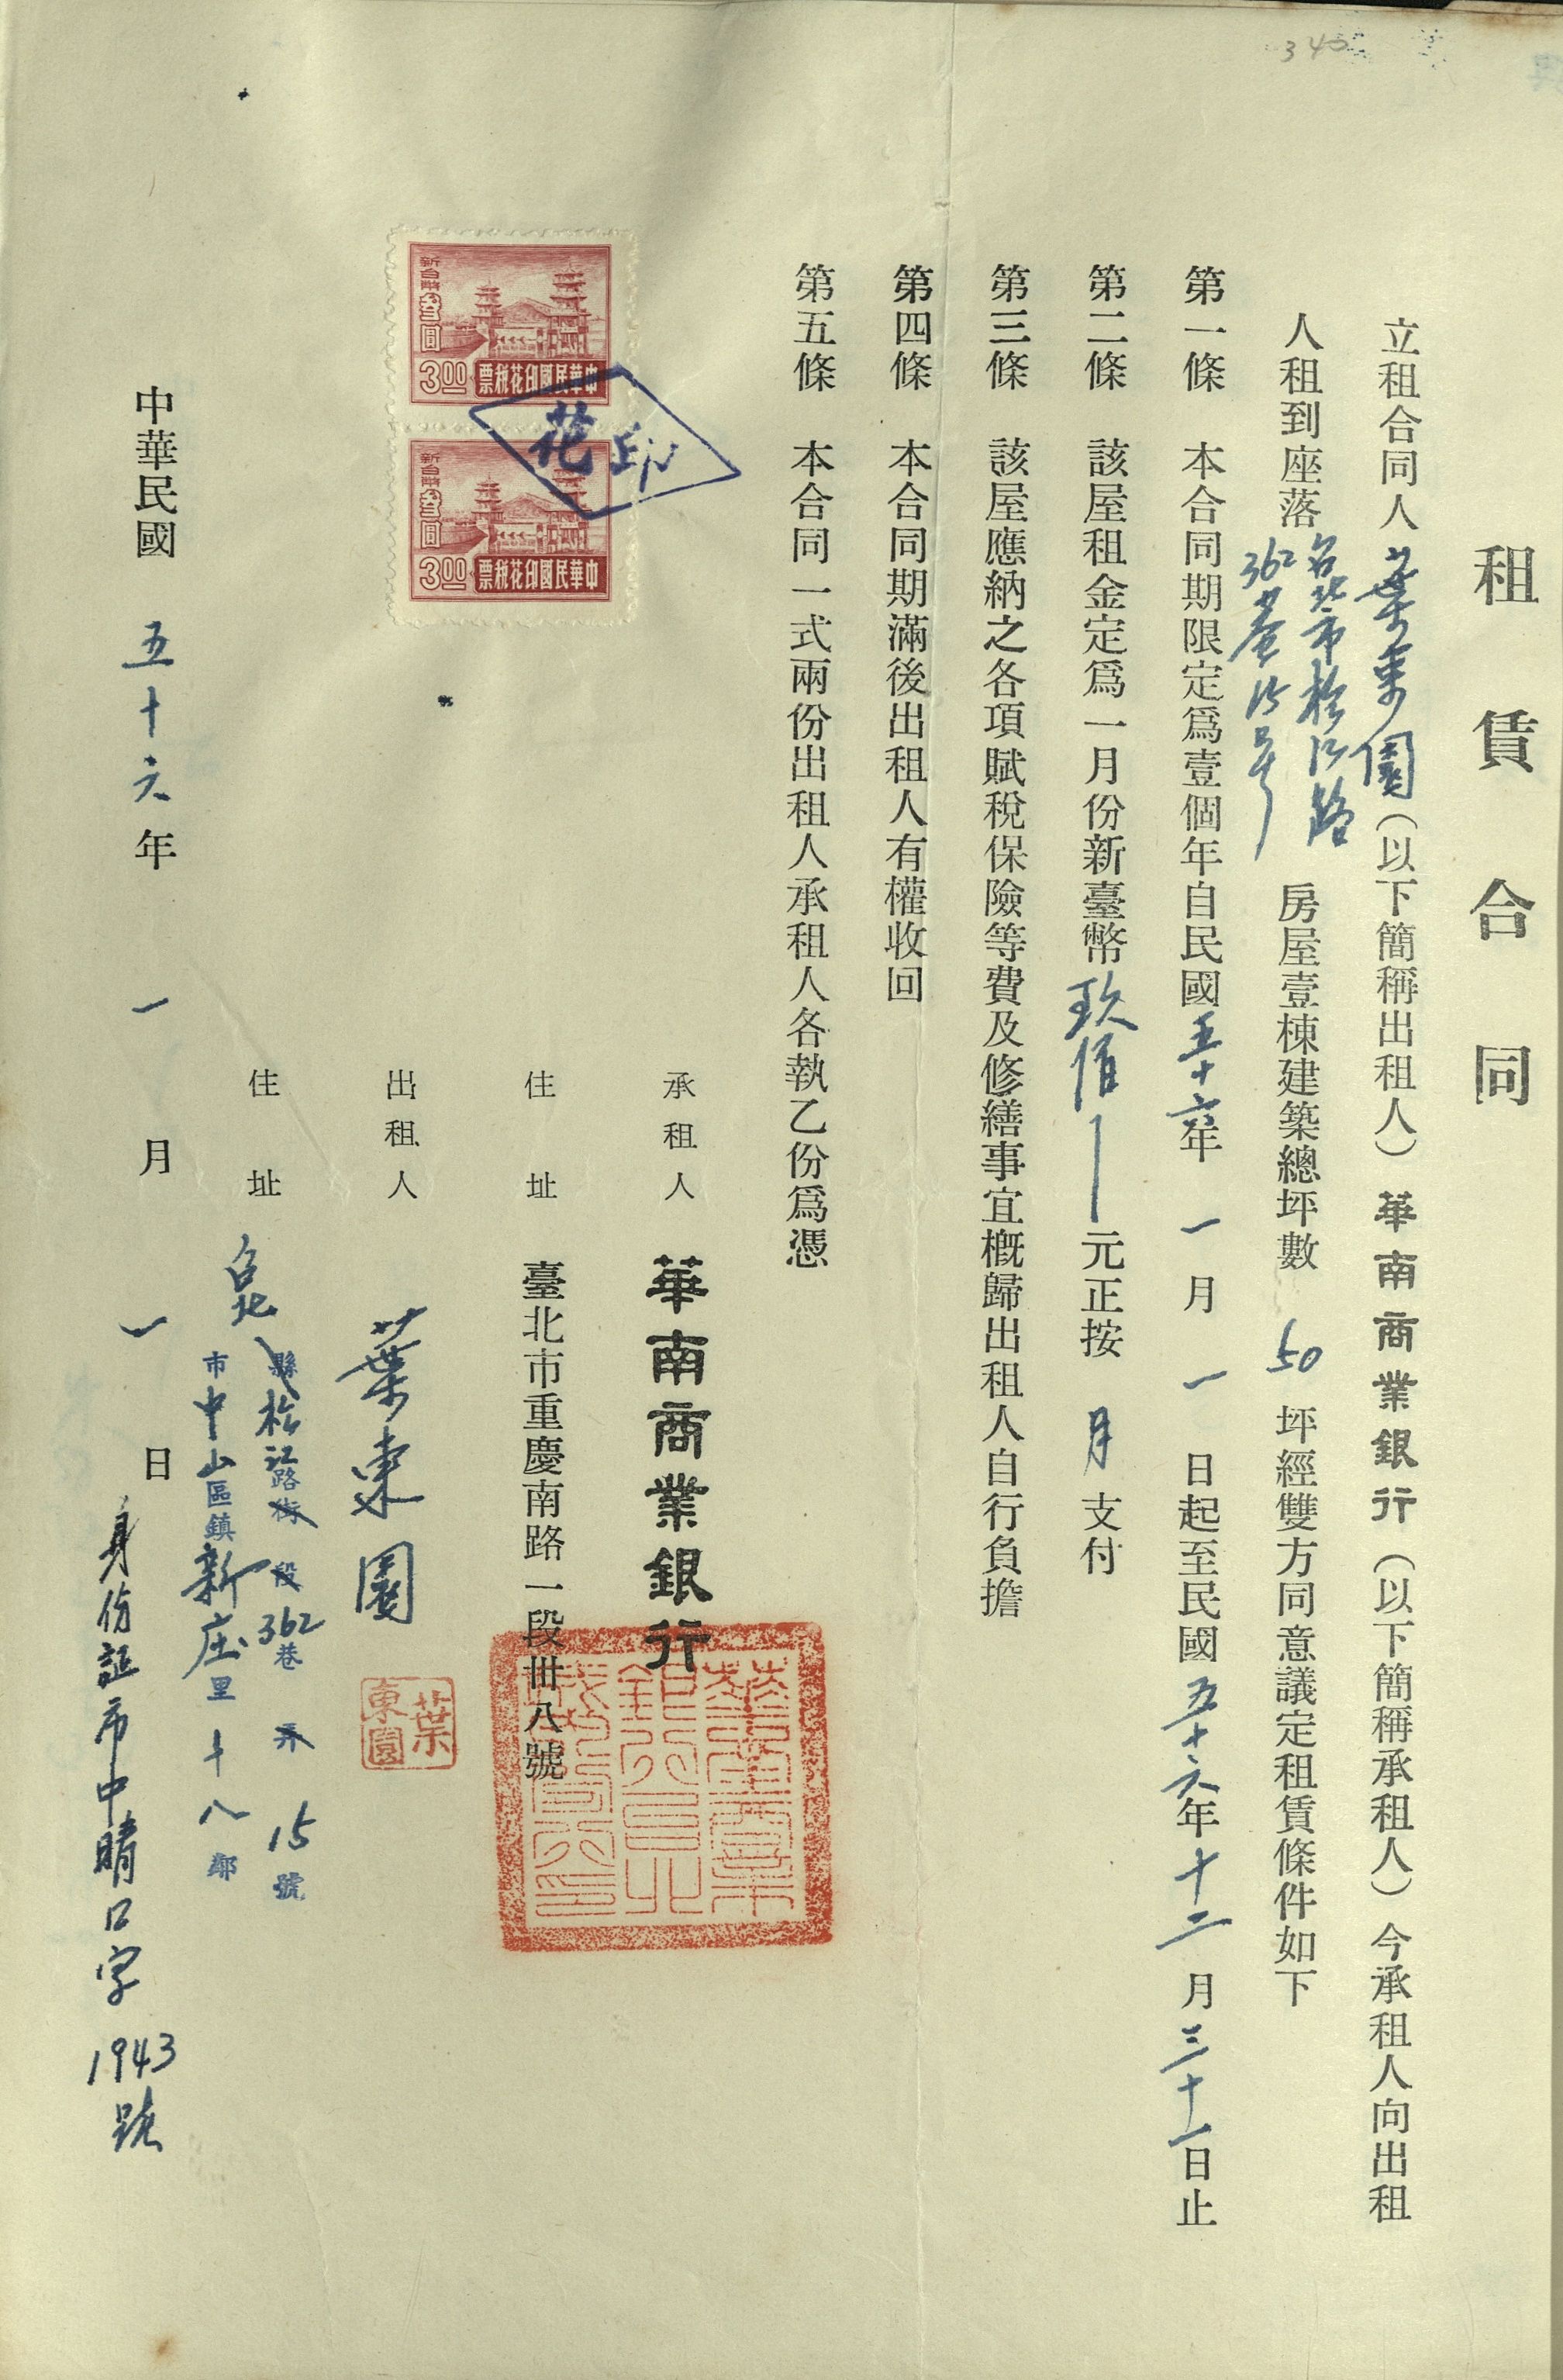 340
租賃合同
立租合同人葉東園（以下簡稱出租人）華南商業銀行（以下簡稱承租人）今承租人向出租
人租到座落台北市松江路362巷15号房屋壹棟建築總坪數50坪經雙方同意議定租賃條件如下
第一條 本合同期限定爲壹個年自民國五十六年一月一日起至民國五十六年十二月三十一日止
第二條 該屋租金定爲一月份新臺幣玖佰元正按月支付
第三條 該屋應納之各項賦稅保險等費及修繕事宜概歸出租人自行負擔
第四條 本合同期滿後出租人有權收回
第五條 本合同一式兩份出租人承租人各執乙份爲憑
新台幣叁圓
3.00
中華民國印花稅票
新台幣叁圓
3.00
中華民國印花稅票
印花
承租人 華南商業銀行
住址 臺北市重慶南路一段卅八號
出租人 葉東園
葉東園
住址 台北縣松江路街段362巷弄15號
市中山區鎮新庄里十八鄰
中華民國五十六年一月一日
身份証市中晴口字1943號